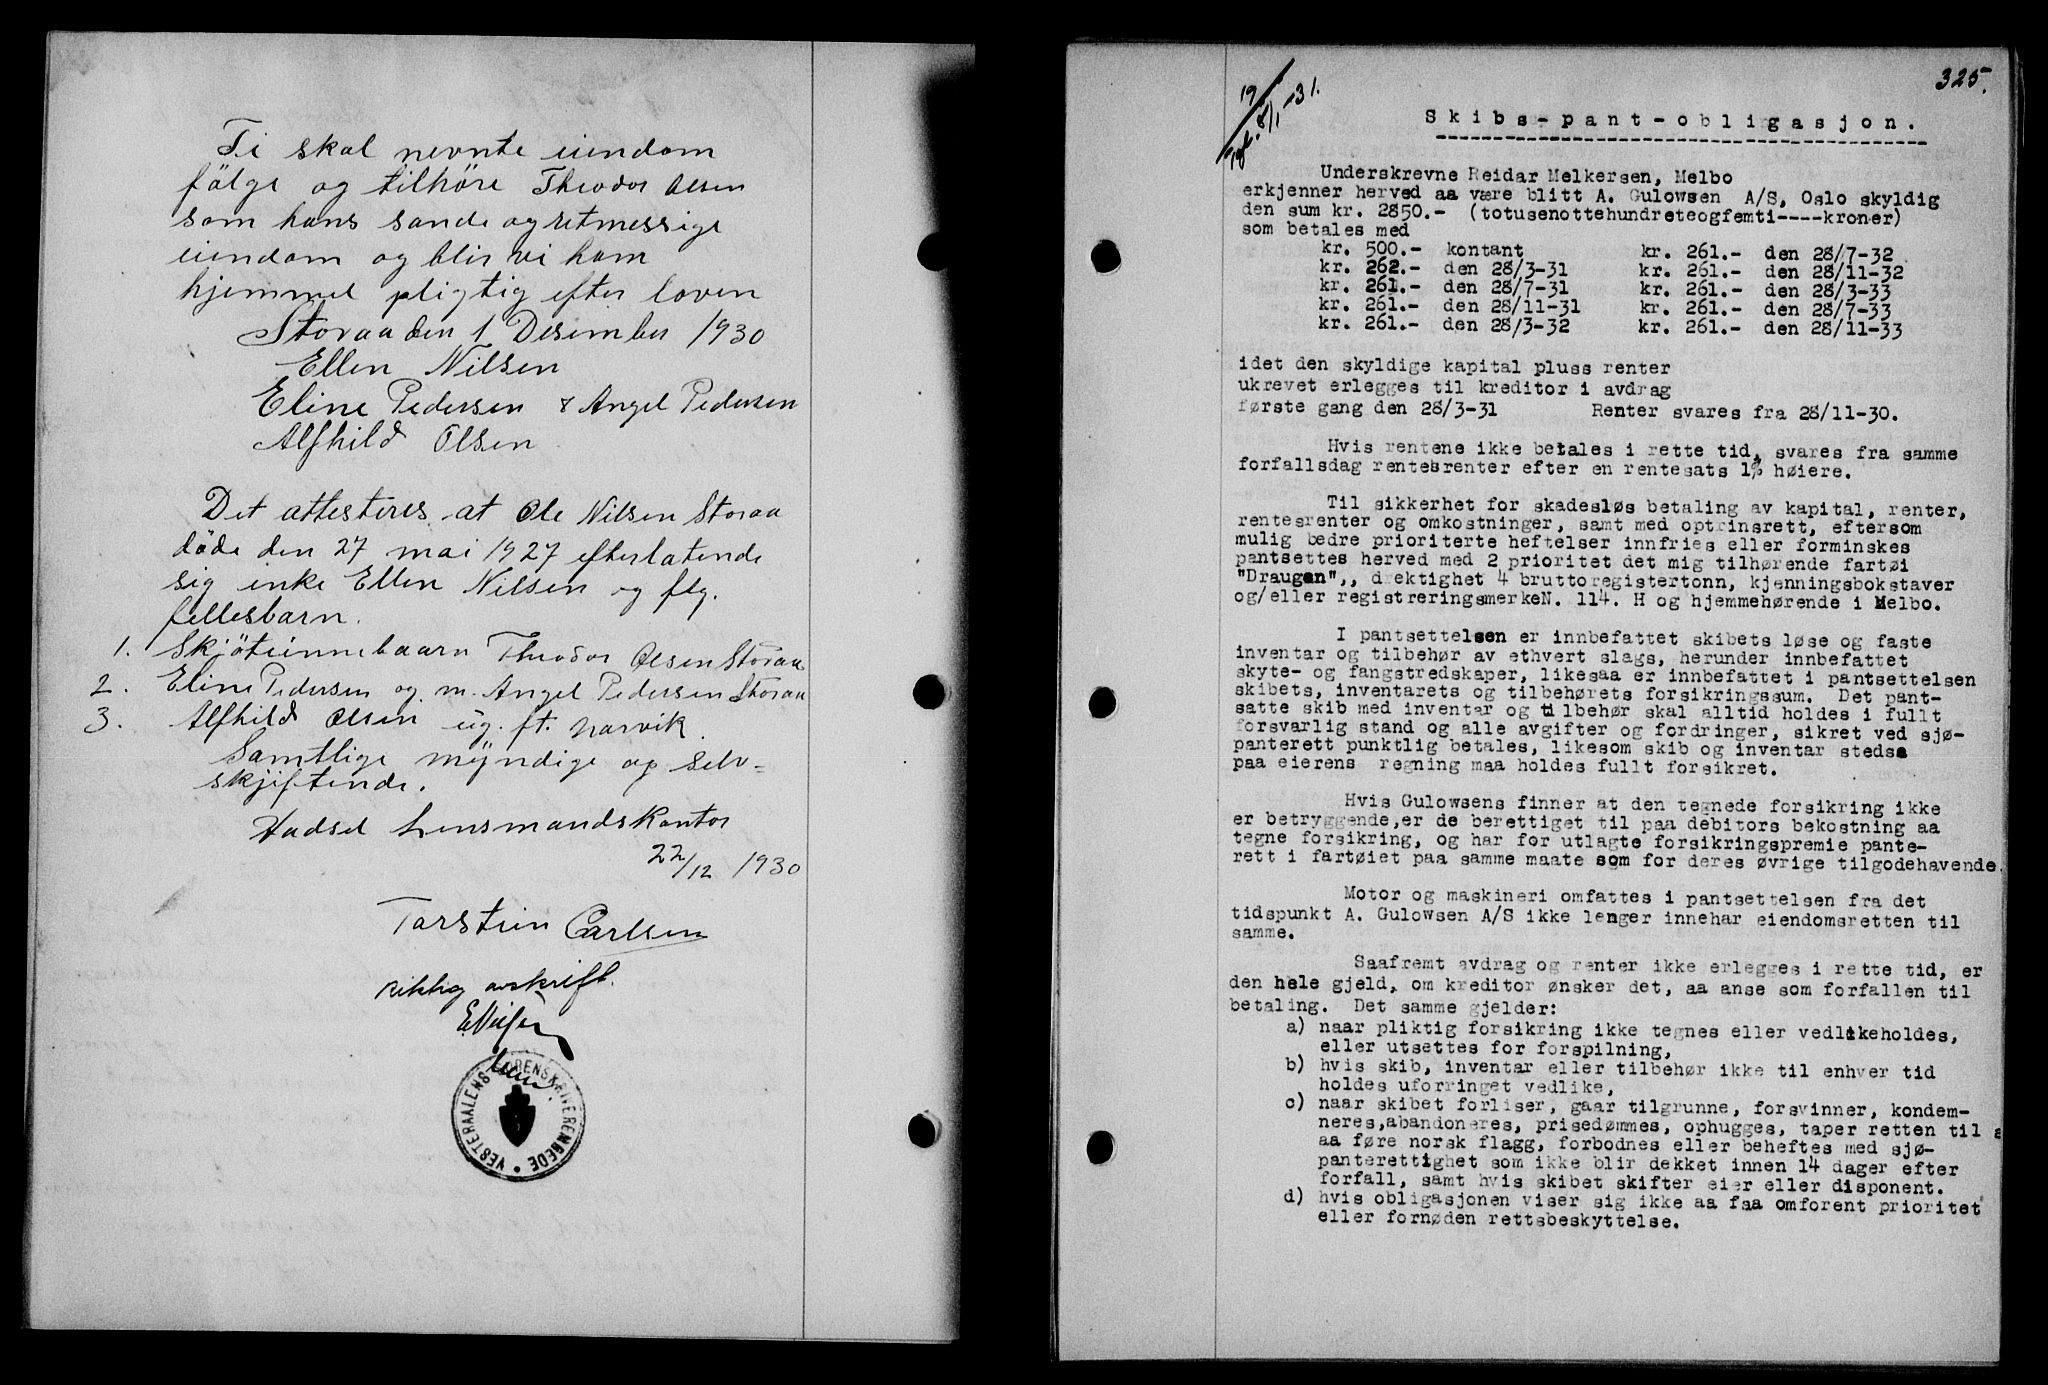 Ti skal nevnte eiendom
fölge og tilhöre Theodor Olsen
som hans sande og retmessige
eiendom og blir vi ham
hjemmel pligtig efter loven
Storaa den 1 Desember 1930
Ellen Nilsen
Eline Pedersen & Angel Pedersen
Alfhild Olsen
Det attesteres at Ole Nilsen Storaa
döde den 27 mai 1927 efterlatende
sig enke Ellen Nilsen og flg.
fellesbarn.
1. Skjöteinnehaaren Theodor Olsen Storaa
2. Eline Pedersen og m. Angel Pedersen Storaa
3. Alfhild Olsen ug. ft. Narvik
Samtlige myndige og selv=
skjiftende.
Hadsel Lensmandskontor
22/12 1930
Torstein Carlsen
riktig avskrift.
VESTERAALENS SORENSKRIVEREMBEDE
325.
19
8/1-31.
Skibs-pant-obligasjon.
Underskrevne Reidar Melkersen, Melbo
erkjenner herved aa være blitt A. Gulowsen A/S, Oslo skyldig
den sum kr. 2850.- (totusenottehundreteogfemti----kroner)
som betales med
kr. 500.- kontant kr. 261.- den 28/7-32
kr. 262.- den 28/3-31 kr. 261.- den 28/11-32
kr. 261.- den 28/7-31 kr. 261.- den 28/3-33
kr. 261.- den 28/11-31 kr. 261.- den 28/7-33
kr. 261.- den 28/3-32 kr. 261.- den 28/11-33
idet den skyldige kapital pluss renter
ukrevet erlegges til kreditor i avdrag
første gang den 28/3-31 Renter svares fra 28/11-30.
Hvis rentene ikke betales i rette tid, svares fra samme
forfallsdag rentesrenter efter en rentesats 1% høiere.
Til sikkerhet for skadesløs betaling av kapital, renter,
rentesrenter og omkostninger, samt med optrinsrett, eftersom
mulig bedre prioriterte heftelser innfries eller forminskes
pantsettes herved med 2 prioritet det mig tilhørende fartøi
"Draugen",, drektighet 4 bruttoregistertonn, kjenningsbokstaver
og/eller registreringsmerkeN. 114. H og hjemmehørende i Melbo.
I pantsettelsen er innbefattet skibets løse og faste
inventar og tilbehør av ethvert slags, herunder innbefattet
skyte- og fangstredskaper, likesaa er innbefattet i pantsettelsen
skibets, inventarets og tilbehørets forsikringssum. Det pant-
satte skib med inventar og tilbehør skal alltid holdes i fullt
forsvarlig stand og alle avgifter og fordringer, sikret ved sjø-
panterett punktlig betales, likesom skib og inventar stedse
paa eierens regning maa holdes fullt forsikret.
Hvis Gulowsens finner at den tegnede forsikring ikke
er betryggende,er de berettiget til paa debitors bekostning aa
tegne forsikring, og har for utlagte forsikringspremie pante-
rett i fartøiet paa samme maate som for deres øvrige tilgodehavende.
Motor og maskineri omfattes i pantsettelsen fra det
tidspunkt A. Gulowsen A/S ikke lenger innehar eiendomsretten til
samme.
Saafremt avdrag og renter ikke erlegges i rette tid, er
den hele gjeld, om kreditor ønsker det, aa anse som forfallen til
betaling. Det samme gjelder:
a) naar pliktig forsikring ikke tegnes eller vedlikeholdes,
eller utsettes for forspilning,
b) hvis skib, inventar eller tilbehør ikke til enhver tid
holdes uforringet vedlike,
c) naar skibet forliser, gaar tilgrunne, forsvinner, kondem-
neres,abandoneres, prisedømmes, ophugges, taper retten til
aa føre norsk flagg, forbodnes eller beheftes med sjø-
panterettighet som ikke blir dekket innen 14 dager efter
forfall, samt hvis skibet skifter eier eller disponent.
d) hvis obligasjonen viser sig ikke aa faa omforent prioritet
eller fornøden rettsbeskyttelse.